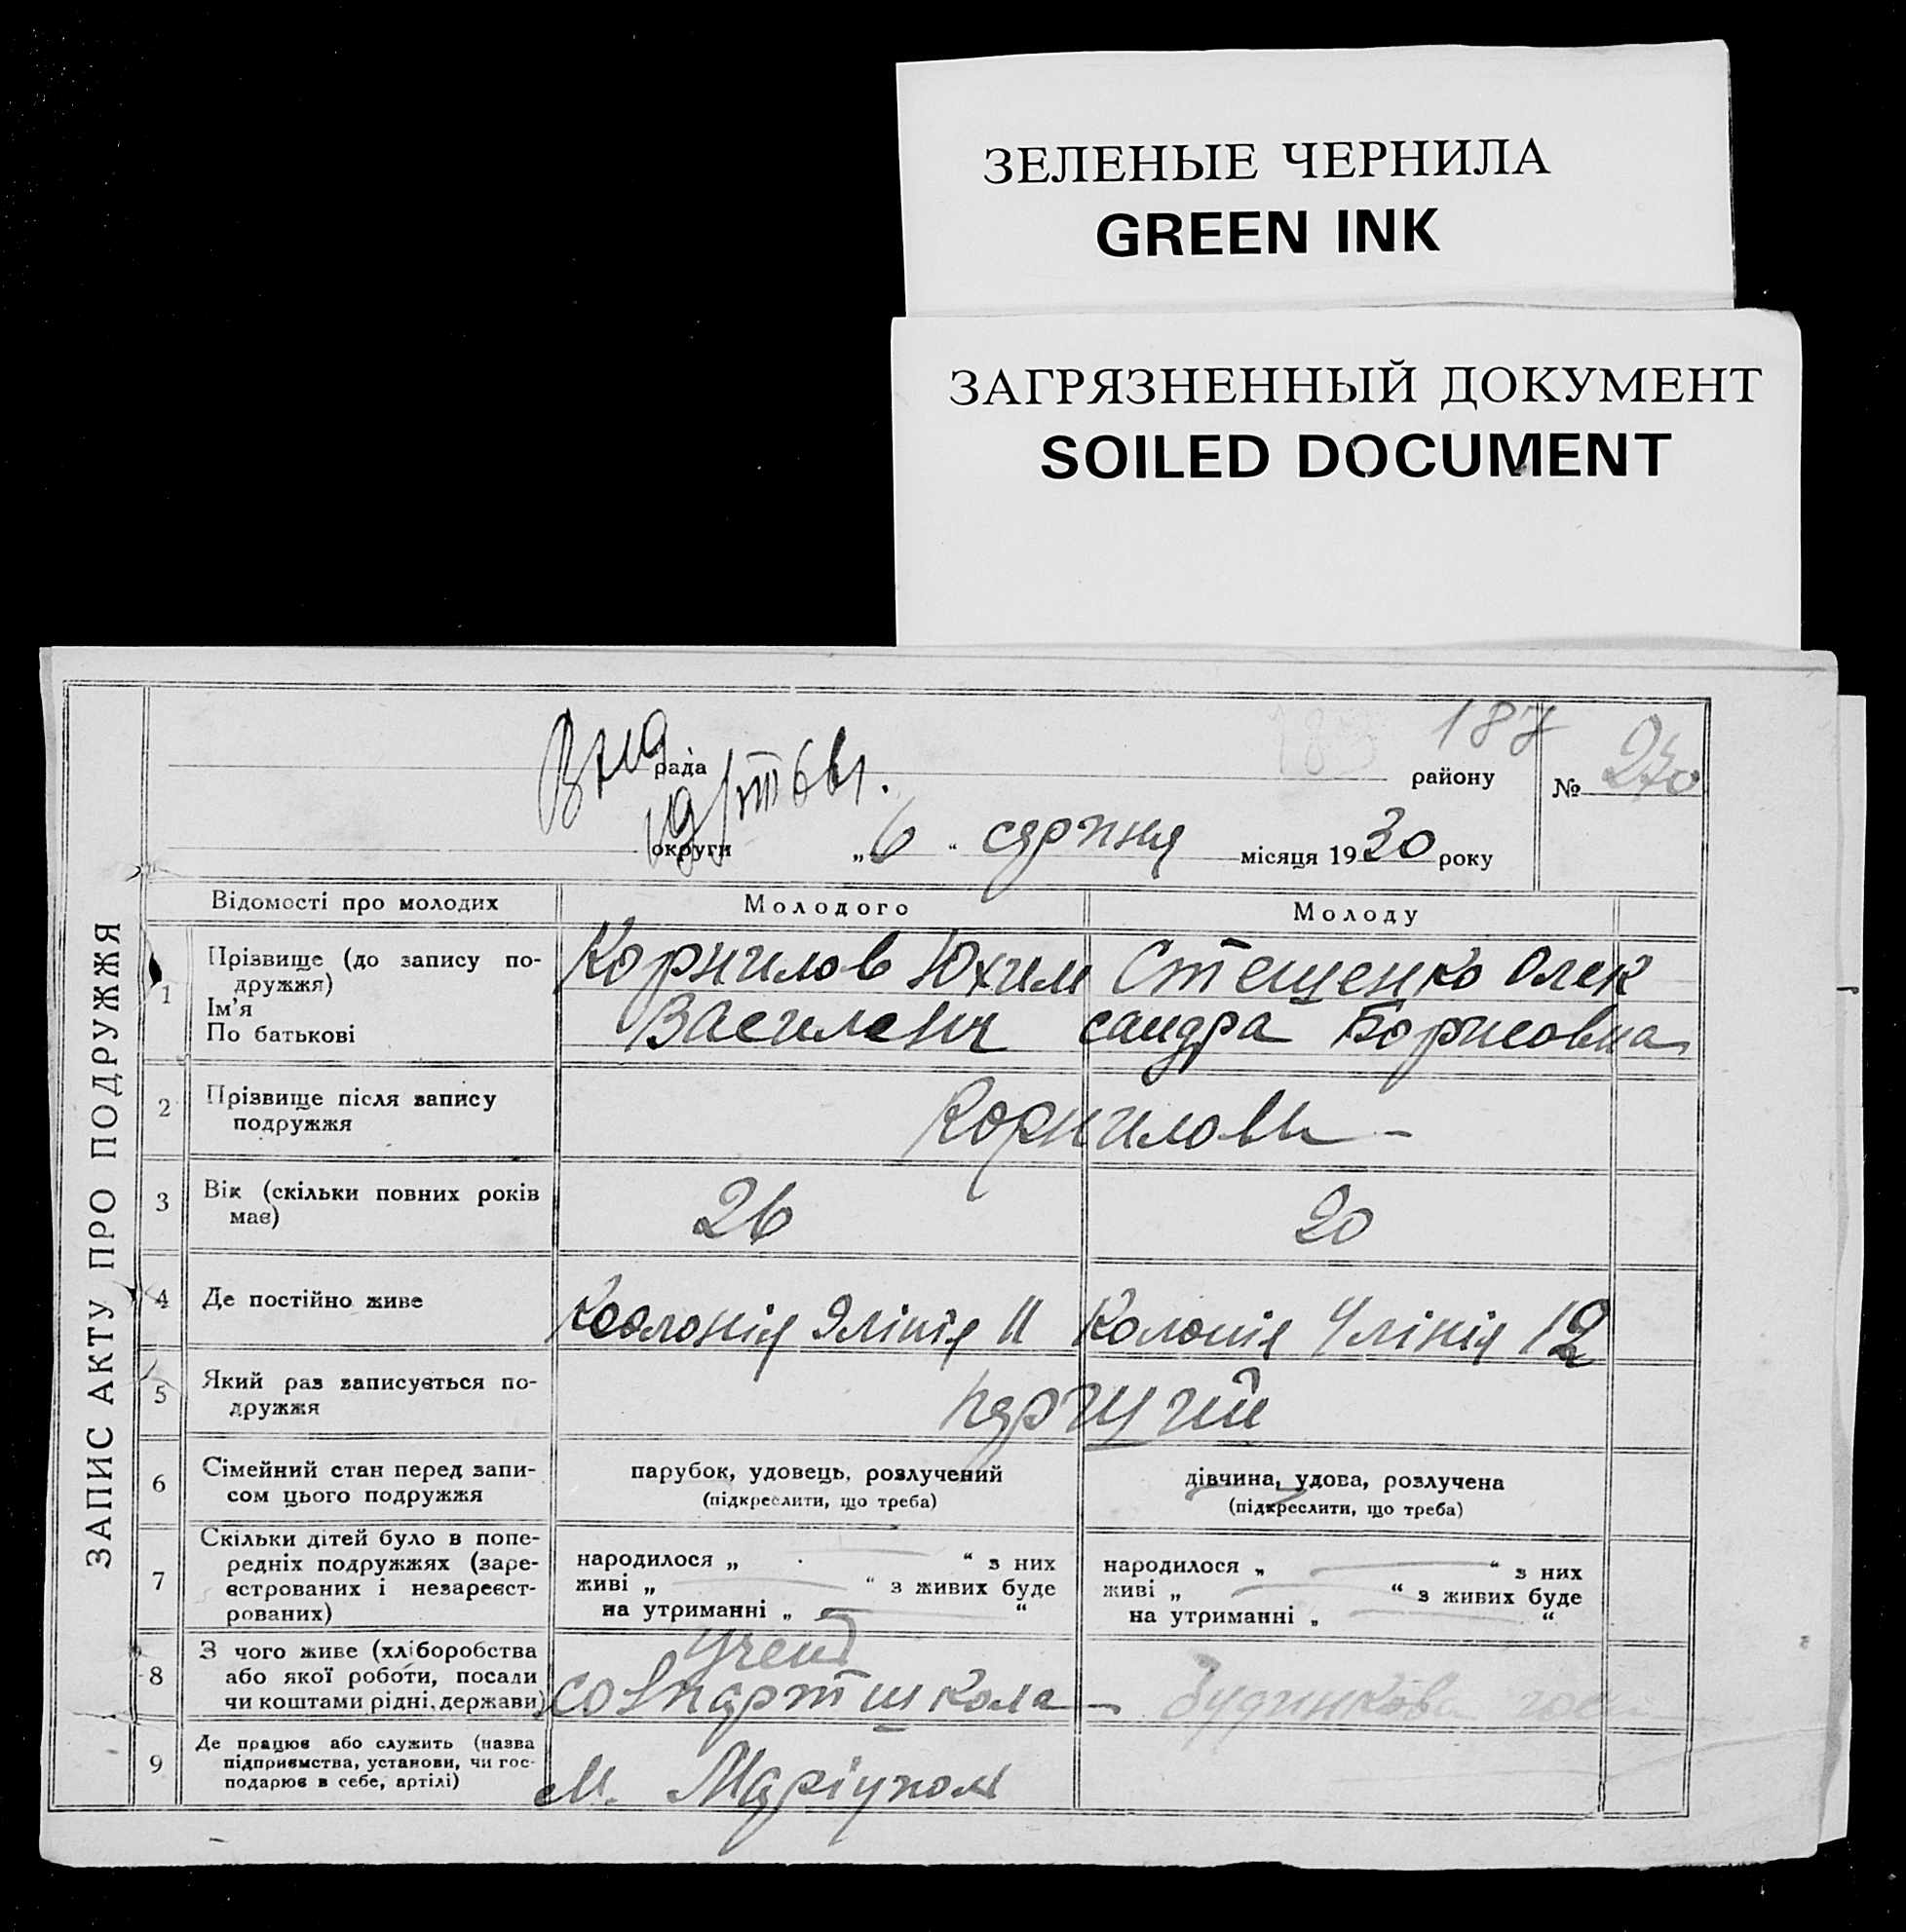 ЗЕЛЕНЫЕ ЧЕРНИЛА
GREEN INK
ЗАГРЯЗНЕННЫЙ ДОКУМЕНТ
SOILED DOCUMENT
ЗАПИС АКТУ ПРО ПОДРУЖЖЯ
187
рада району № 270
округи „6“ серпня місяця 1930 року
Відомості про молодих Молодого Молоду
1 Прізвище (до запису по-
дружжя)
Ім'я
По батькові
Корнилов Юхим
Василень
Стещенко Олек
сандра Борисовна
2 Прізвище після запису
подружжя
Корнилови
3 Вік (скільки повних років
має)
26 20
4 Де постійно живе
Колонія 9 лінія 11 Колонія 4 лінія 12
5 Який раз записується по-
дружжя
перший
6 Сімейний стан перед запи-
сом цього подружжя
парубок, удовець, розлучений
(підкреслити, що треба)
дівчина, удова, розлучена
(підкреслити, що треба)
7 Скільки дітей було в попе-
редніх подружжях (заре-
єстрованих і незареєст-
рованих)
народилося „ “ з них
живі „ “ з живих буде
на утриманні „ “
народилося „ “ з них
живі „ “ з живих буде
на утриманні „ “
8 З чого живе (хліборобства
або якої роботи, посади
чи коштами рідні, держави)
учень
совпартшкола
9 Де працює або служить (назва
підприємства, установи, чи гос-
подарює в себе, артілі)
м. Маріуполь